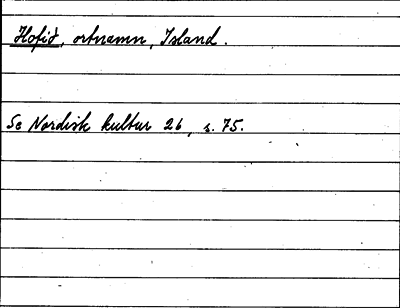 Hofið, ortnamn, Island.
Se Nordisk kultur 26, s. 75.